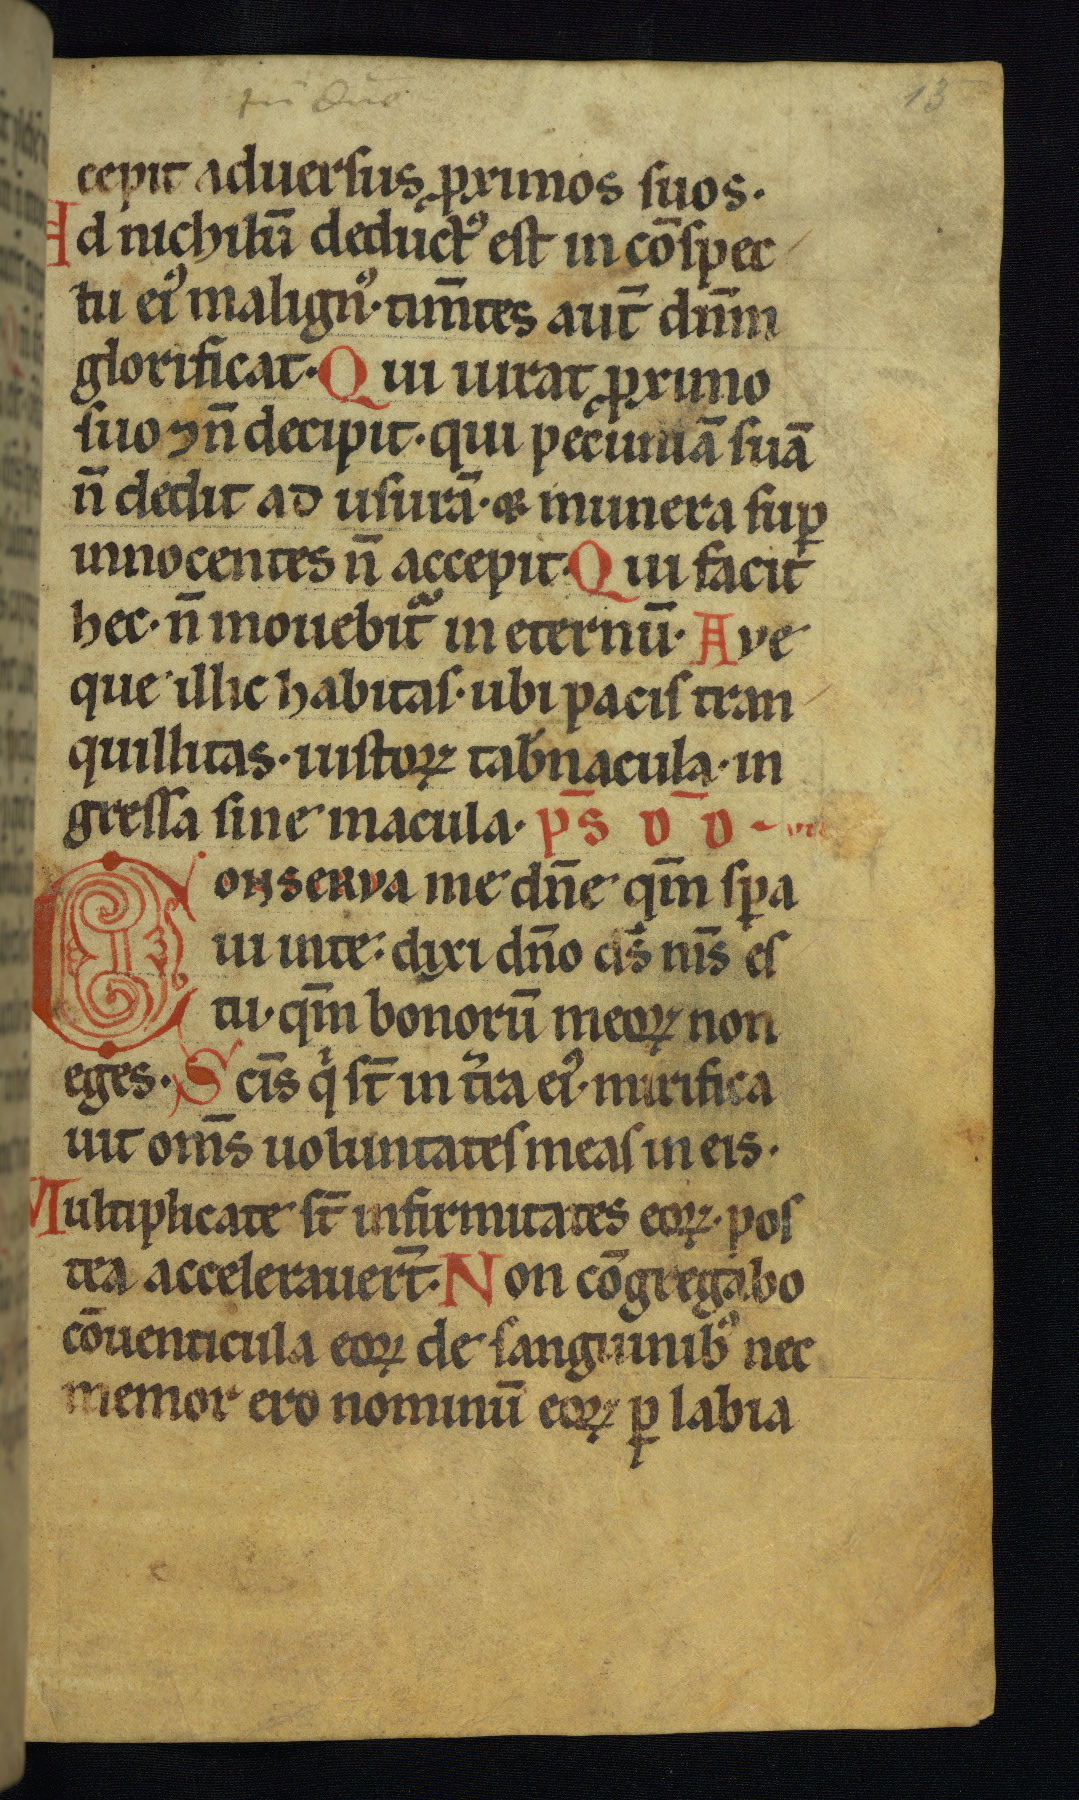 13
cepit aduersus ꝓximos suos·
Ad nichilū deductꝰ est in cōspec
tu eiꝰ malignꝰ· tim̄tes aut̄ dn̄m
glorificat· Qui iurat ꝓximo
suo ⁊ n̄ decipit· qui pecuniā suā
n̄ dedit ad usurā· & munera suꝑ
innocentes n̄ accepit· Qui facit
hec· n̄ mouebit᷑ in eternū· Aue
que illic habitas· ubi pacis tran
quillitas· iustoꝝ tab̄nacula· in
gressa sine macula· p̄s d̄ d̄
Conserva me dn̄e qm̄ spa
ui in te: dixi dn̄o ds̄ ms̄ es
tu· qm̄ bonorū meoꝝ non
eges· Scīs qͥ st̄ in t̄ra eiꝰ· mirifica
uit om̄s uoluntates meas in eis·
Multiplicate st̄ infirmitates eoꝝ· pos
tea accelerauert̄· Non cōgregabo
cōuenticula eoꝝ de sanguinibꝰ nec
memor ero nominū eoꝝ ꝑ labia